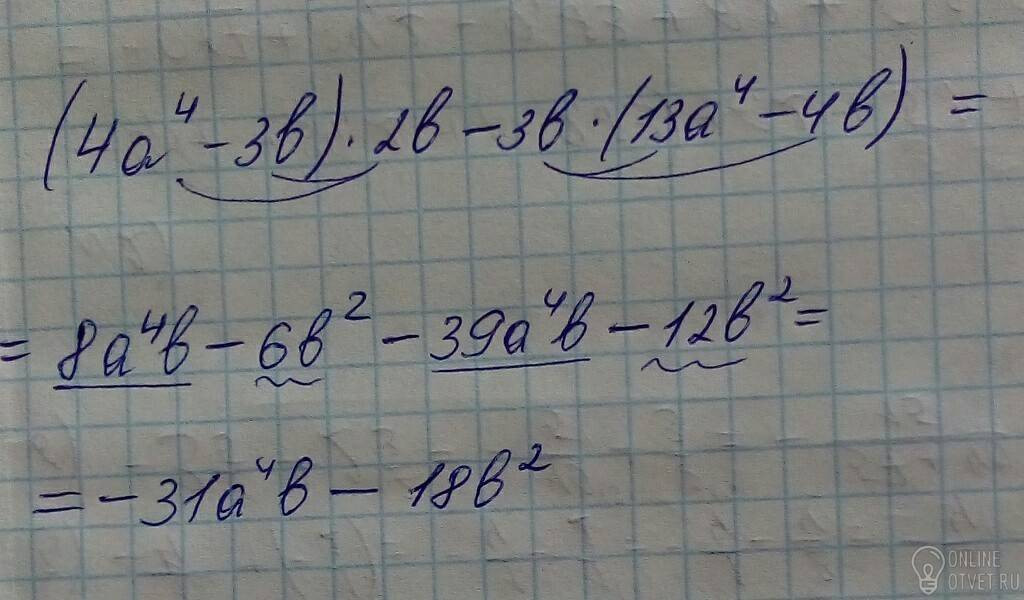 (4a⁴ - 3b) · 2b - 3b · (13a⁴ - 4b) =
= 8a⁴b - 6b² - 39a⁴b - 12b² =
= - 31a⁴b - 18b²
ONLINE
OTVET.RU